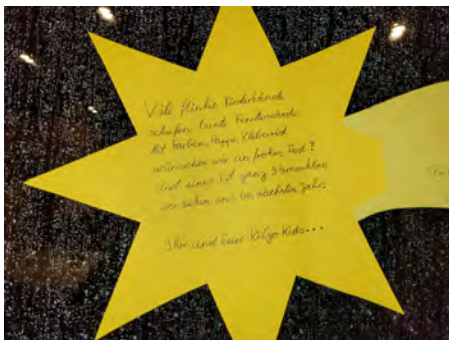 Viele flinke Kinderhände
schufen bunte Fensterwände
Mit Farben, Pappe, Kleberest
wünschen wir ein frohes Fest!
Und eines ist ganz
wir sehen uns im nächsten Jahr.
Ihre und Eure Kigo Kids...